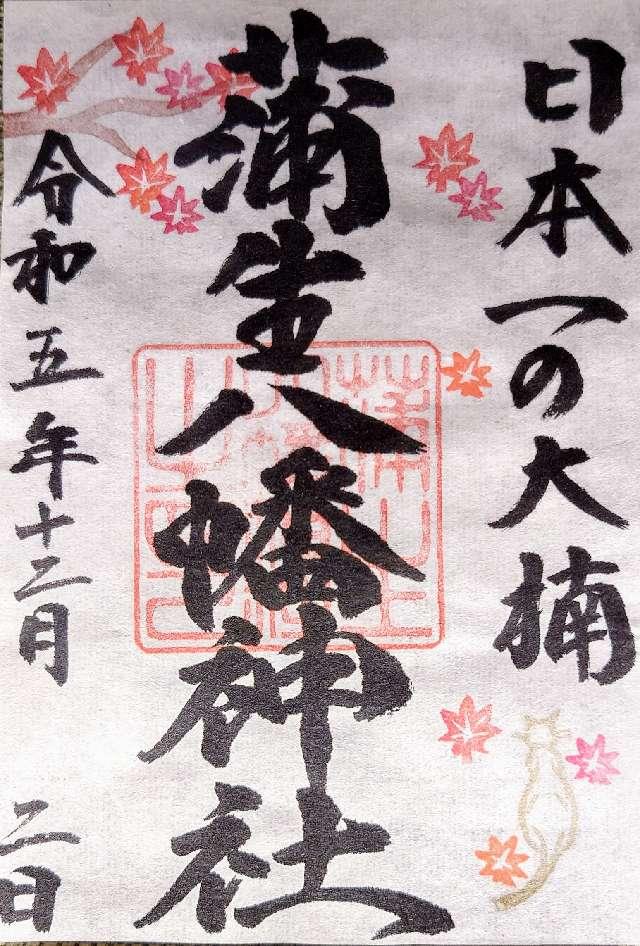 日本一の大楠
蒲生八幡神社
令和五年十二月
二日